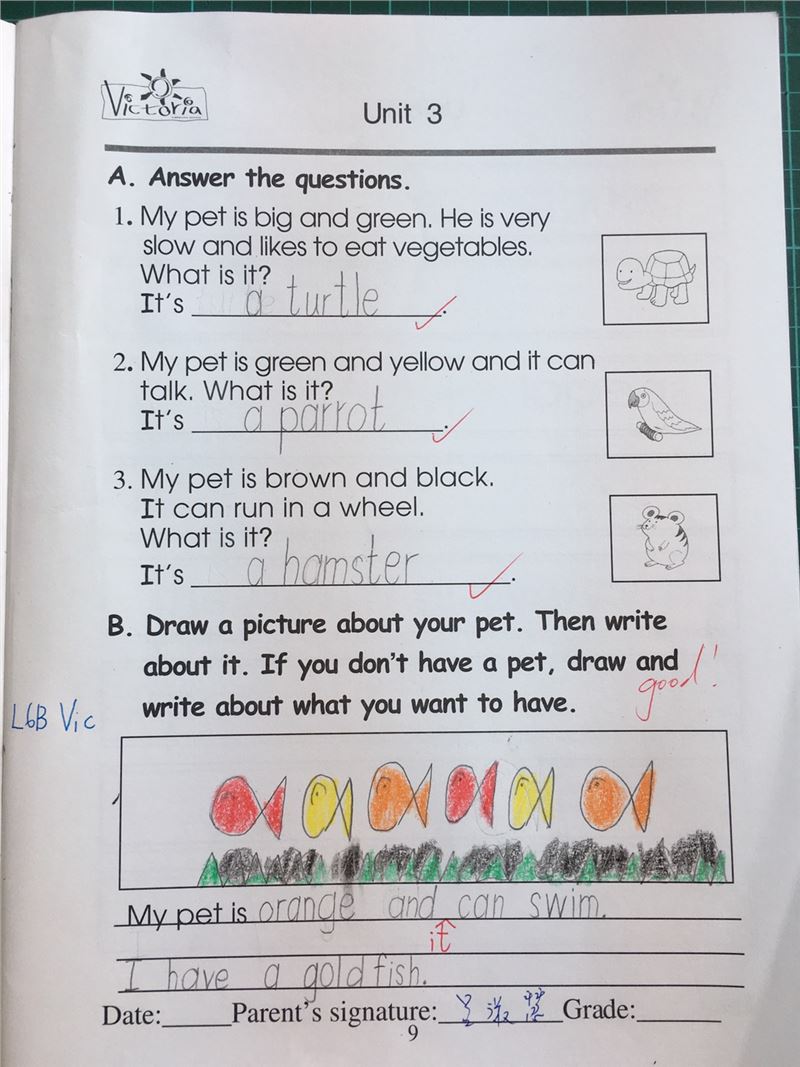 Victoria
Unit 3
A. Answer the questions.
1. My pet is big and green. He is very
slow and likes to eat vegetables.
What is it?
It's a turtle.
2. My pet is green and yellow and it can
talk. What is it?
It's a parrot.
3. My pet is brown and black.
It can run in a wheel.
What is it?
It's a hamster.
B. Draw a picture about your pet. Then write
about it. If you don't have a pet, draw and
good!
write about what you want to have.
L6B Vic
My pet is orange and can swim.
it
I have a goldfish.
Date:_____Parent's signature:_____Grade:_____
9